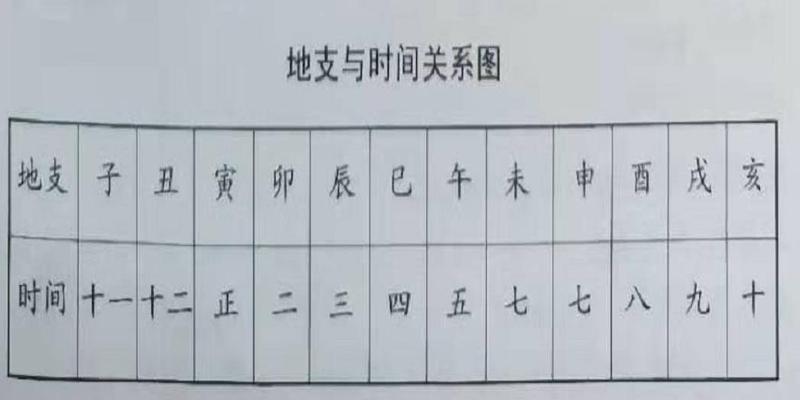 地支与时间关系图
地支 子 丑 寅 卯 辰 巳 午 未 申 酉 戌 亥
时间 十一 十二 正 二 三 四 五 七 七 八 九 十